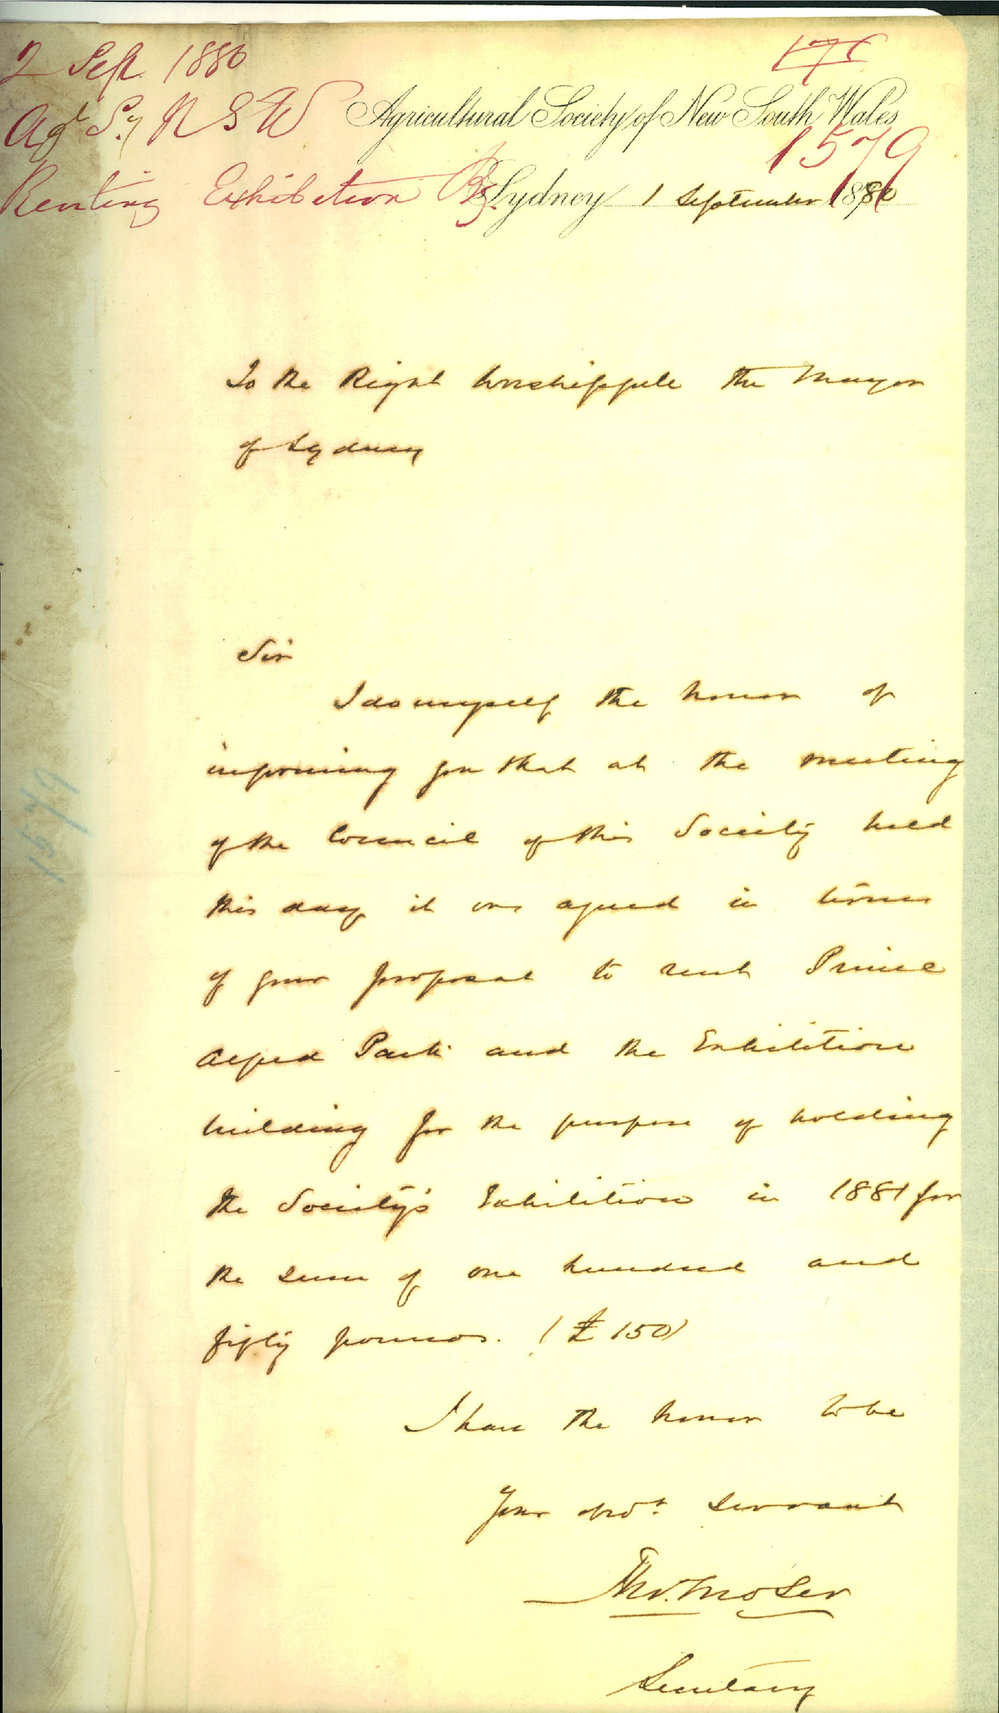 2 Sept. 1880
176
Agl Sy N S W
Agricultural Society of New South Wales
1579
Renting Exhibition Bg.
Sydney 1 September 1880
To the Right Worshipfull the Mayor
of Sydney
Sir
I do myself the honor of
informing you that at the meeting
of the Council of this Society held
this day it was agreed in terms
of your proposal to rent Prince
Alfred Park and the Exhibition
building for the purpose of holding
the Society's Exhibition in 1881 for
the sum of one hundred and
fifty pounds. (£150)
1579
I have the honor to be
Your obdt. servant
Secretary